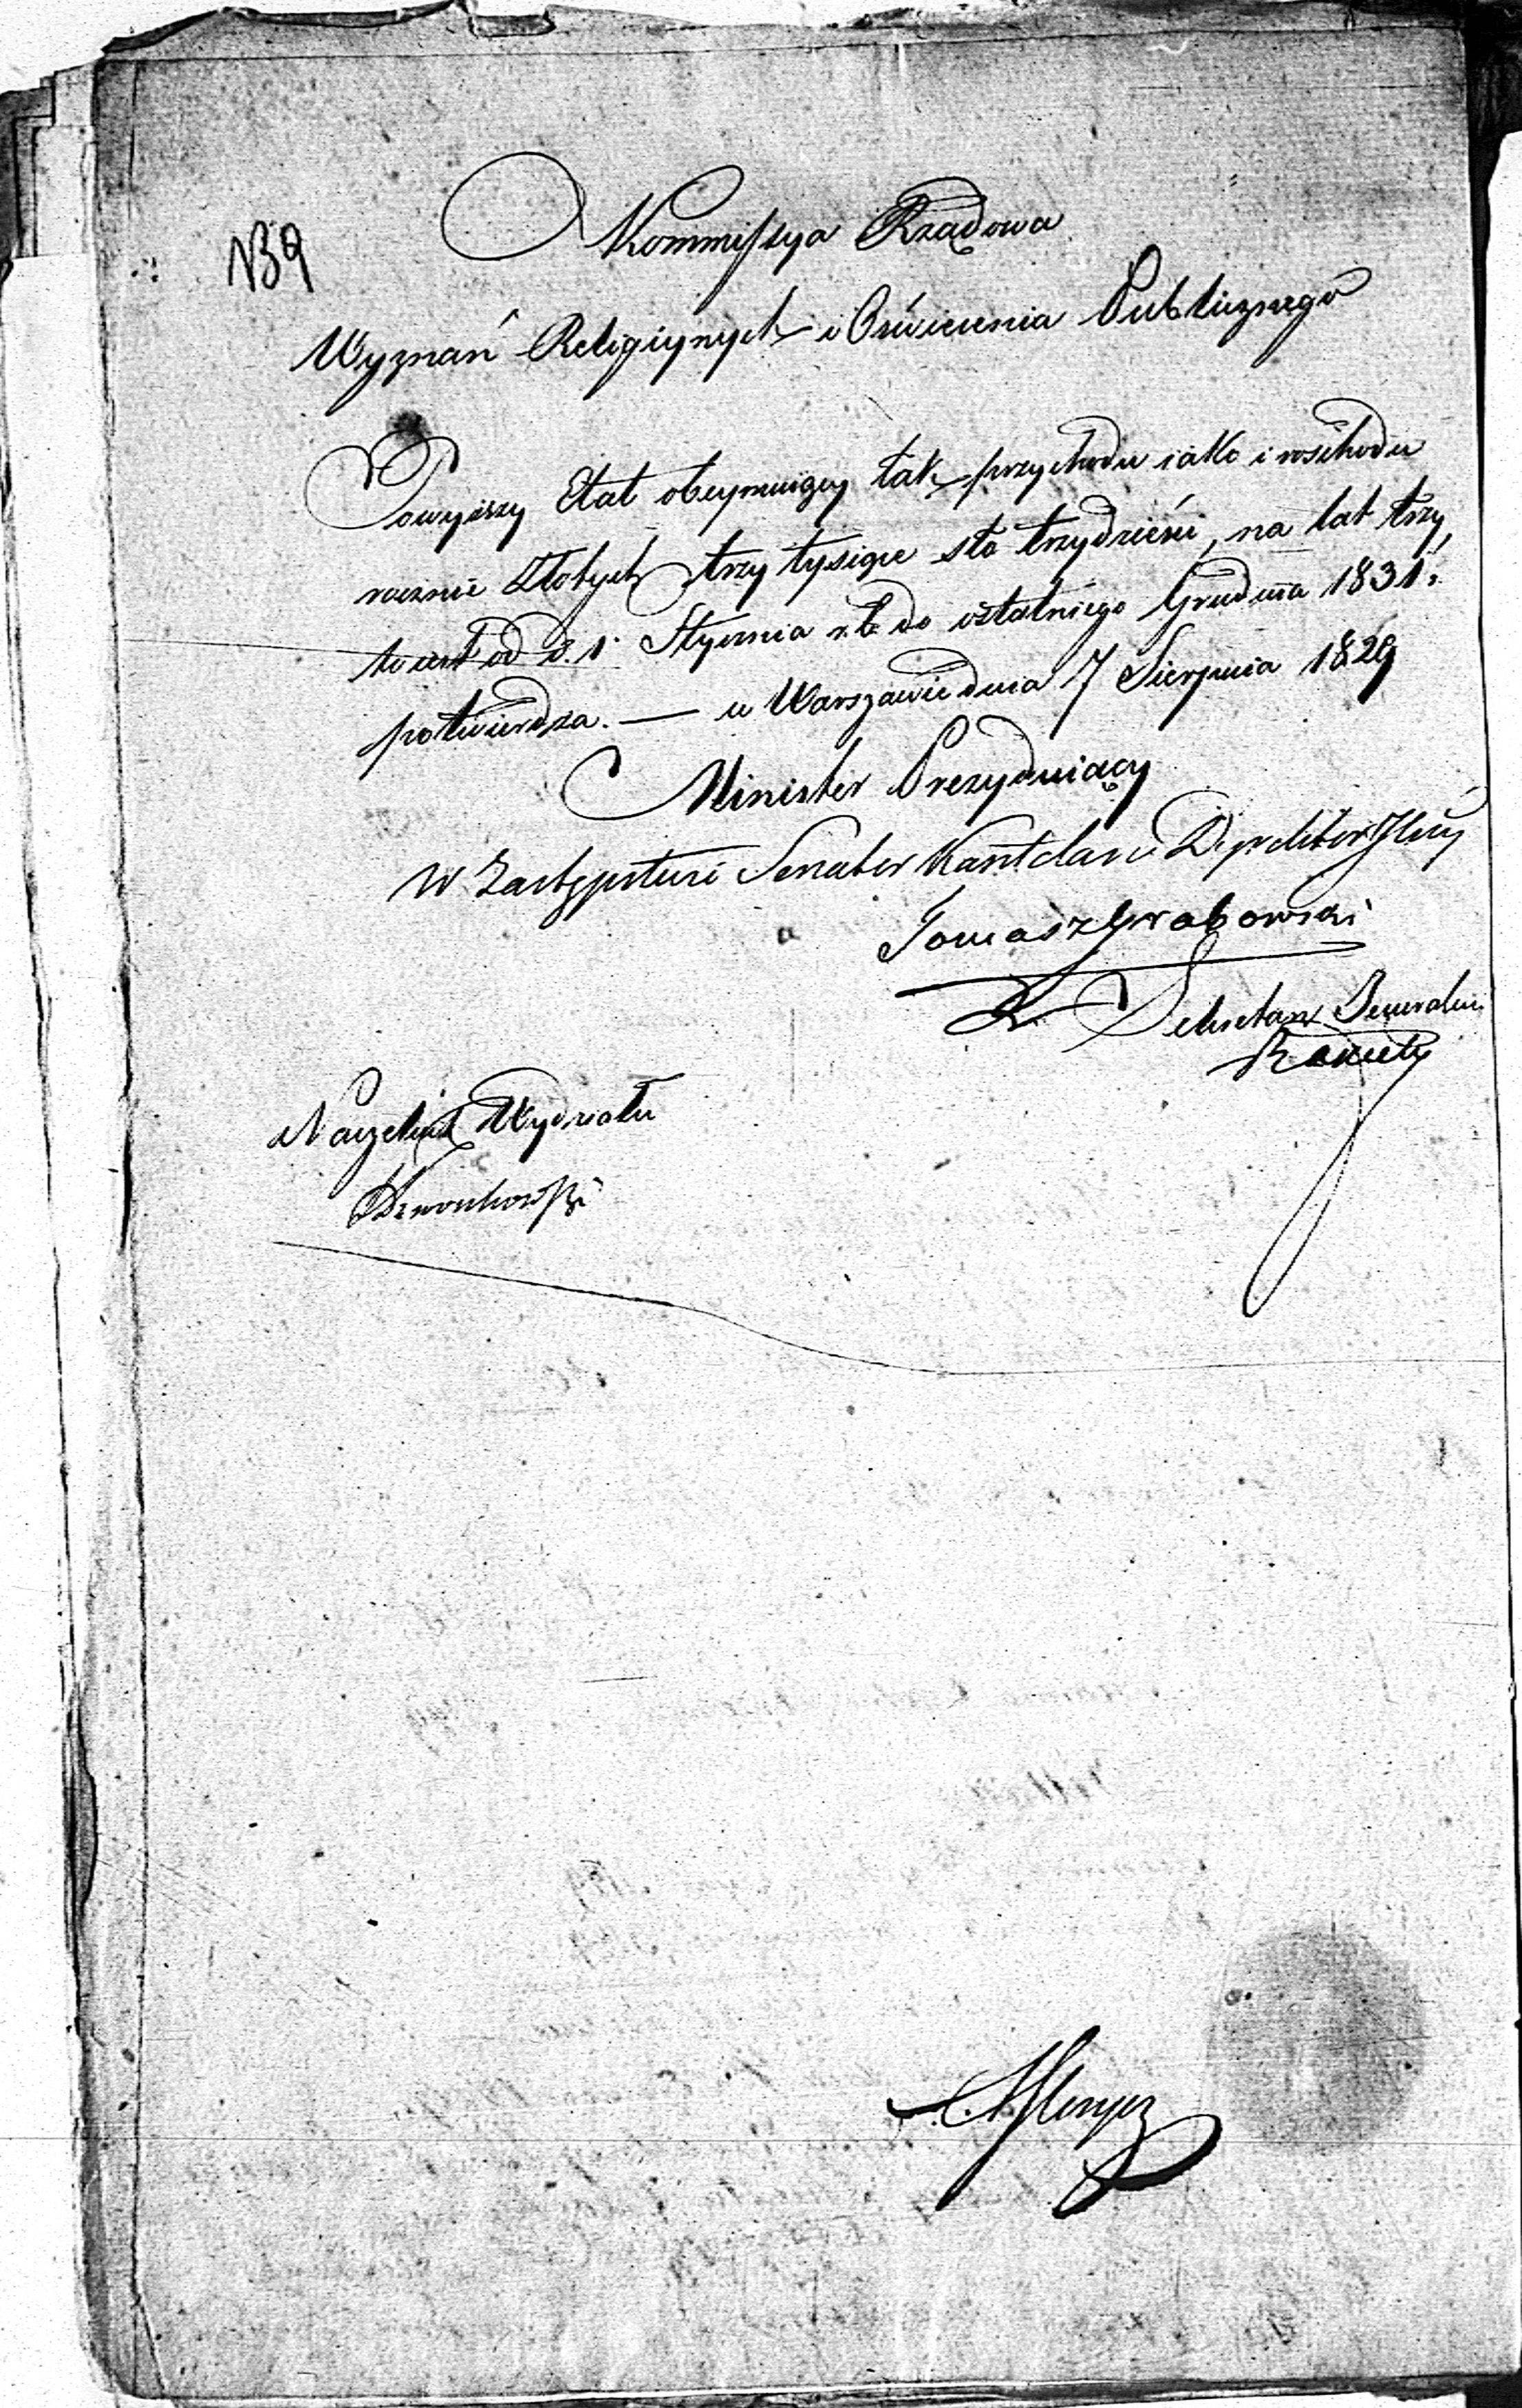 139
Kommissya Rządowa
Wyznań Religiynych i Oświecenia Publicznego
Powyższy Etat obeymuiący tak przychodu iako i roschodu
rocznie Złotych trzy tysiące sto trzydzieści, na lat trzy,
to iest od d. 1 Stycznia r. b. do ostatniego Grudnia 1831.
potwierdza. — w Warszawie dnia 7 Sierpnia 1829
Minister Prezyduiący
w Zastępstwie Senator Kasztelan Dyrektor Jlny
Tomasz Grabowski
Sekretarz Jeneralny
Naczelnik Wydziału